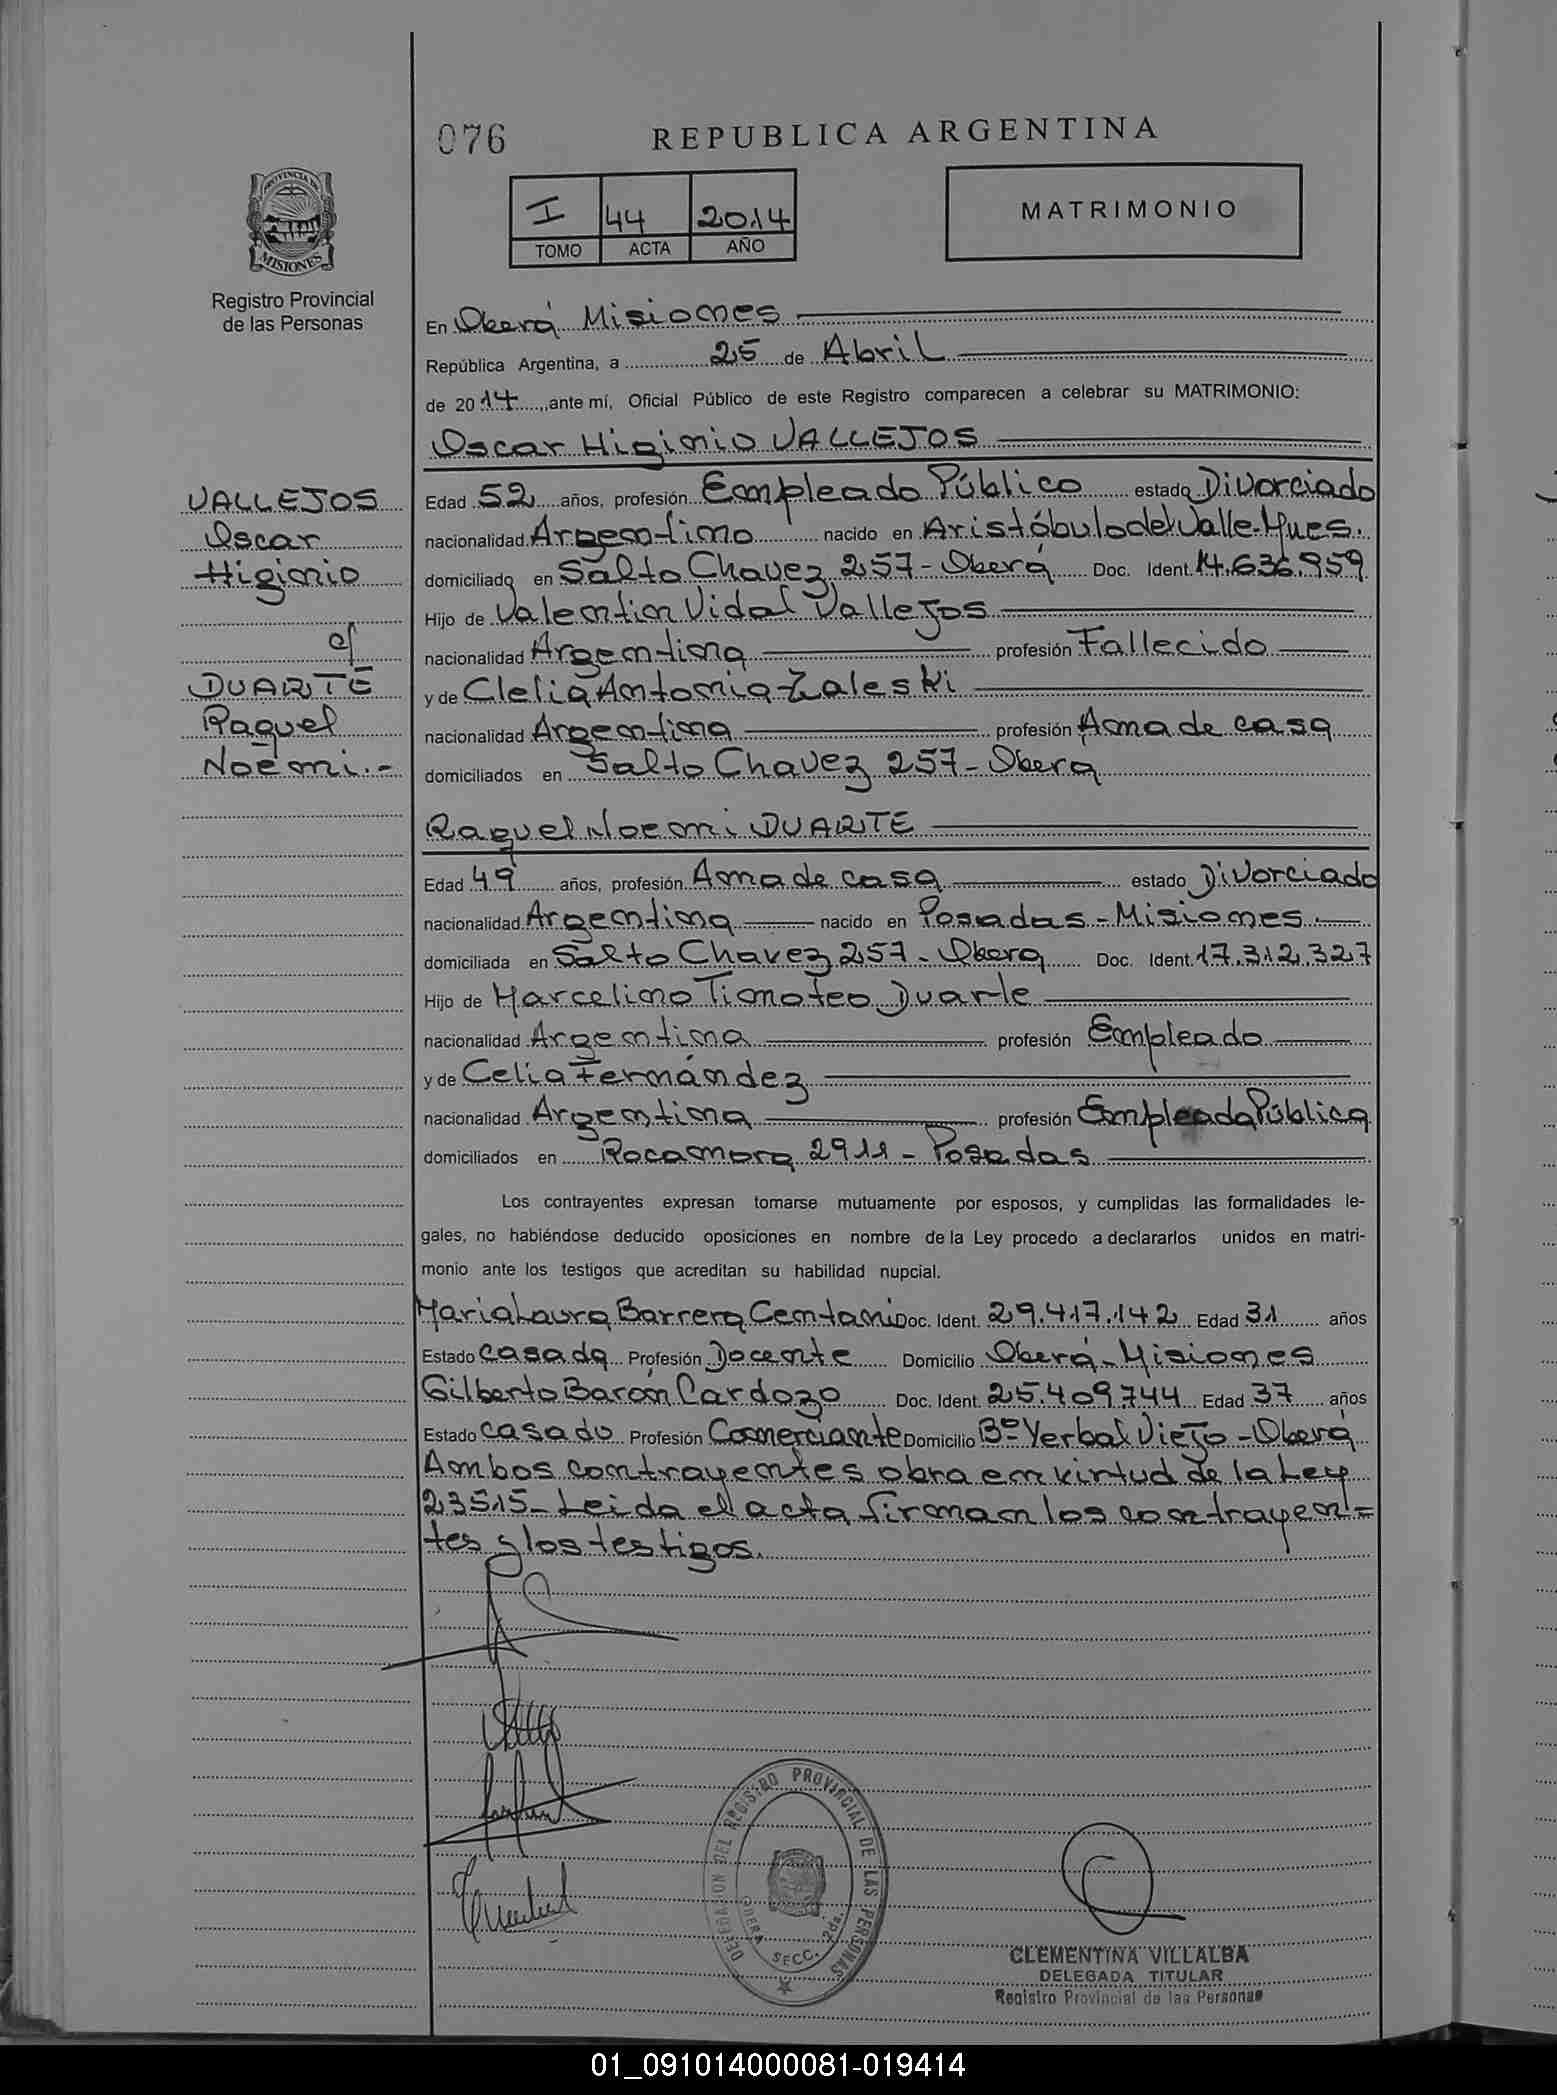 076
REPUBLICA ARGENTINA
PROVINCIA DE
MISIONES
Registro Provincial
de las Personas
I 44 2014
TOMO ACTA AÑO
MATRIMONIO
En Oberá Misiones
República Argentina, a 25 de Abril
de 2014, ante mí, Oficial Público de este Registro comparecen a celebrar su MATRIMONIO:
Oscar Higinio VALLEJOS
VALLEJOS
Oscar
Higinio
c/
DUARTE
Raquel
Noemi.-
Edad 52 años, profesión Empleado Público estado Divorciado
nacionalidad Argentino nacido en Aristóbulo del Valle-Mnes.
domiciliado en Salto Chavez 257-Oberá Doc. Ident. 14.636.959
Hijo de Valentin Vidal Vallejos
nacionalidad Argentina profesión Fallecido
y de Clelia Antonia Zaleski
nacionalidad Argentina profesión Ama de casa
domiciliados en Salto Chavez 257-Obera
Raquel Noemi DUARTE
Edad 49 años, profesión Ama de casa estado Divorciado
nacionalidad Argentina nacido en Posadas-Misiones.
domiciliada en Salto Chavez 257-Obera Doc. Ident. 17.312.327
Hijo de Marcelino Timoteo Duarte
nacionalidad Argentina profesión Empleado
y de Celia Fernández
nacionalidad Argentina profesión Empleada Pública
domiciliados en Rocamora 2911-Posadas
Los contrayentes expresan tomarse mutuamente por esposos, y cumplidas las formalidades le-
gales, no habiéndose deducido oposiciones en nombre de la Ley procedo a declararlos unidos en matri-
monio ante los testigos que acreditan su habilidad nupcial.
Maria Laura Barrera Centani Doc. Ident. 29.417.142 Edad 31 años
Estado casada Profesión Docente Domicilio Oberá-Misiones
Gilberto Barón Cardozo Doc. Ident. 25.409.744 Edad 37 años
Estado casado Profesión Comerciante Domicilio Bº Yerbal Viejo-Oberá
Ambos contrayentes obra en virtud de la Ley
23515-Leida el acta, firman los contrayen=
tes y los testigos.
DELEGACION DEL REGISTRO PROVINCIAL DE LAS PERSONAS
OBERA SECC. 2da.
CLEMENTINA VILLALBA
DELEGADA TITULAR
Registro Provincial de las Personas
01_091014000081-019414